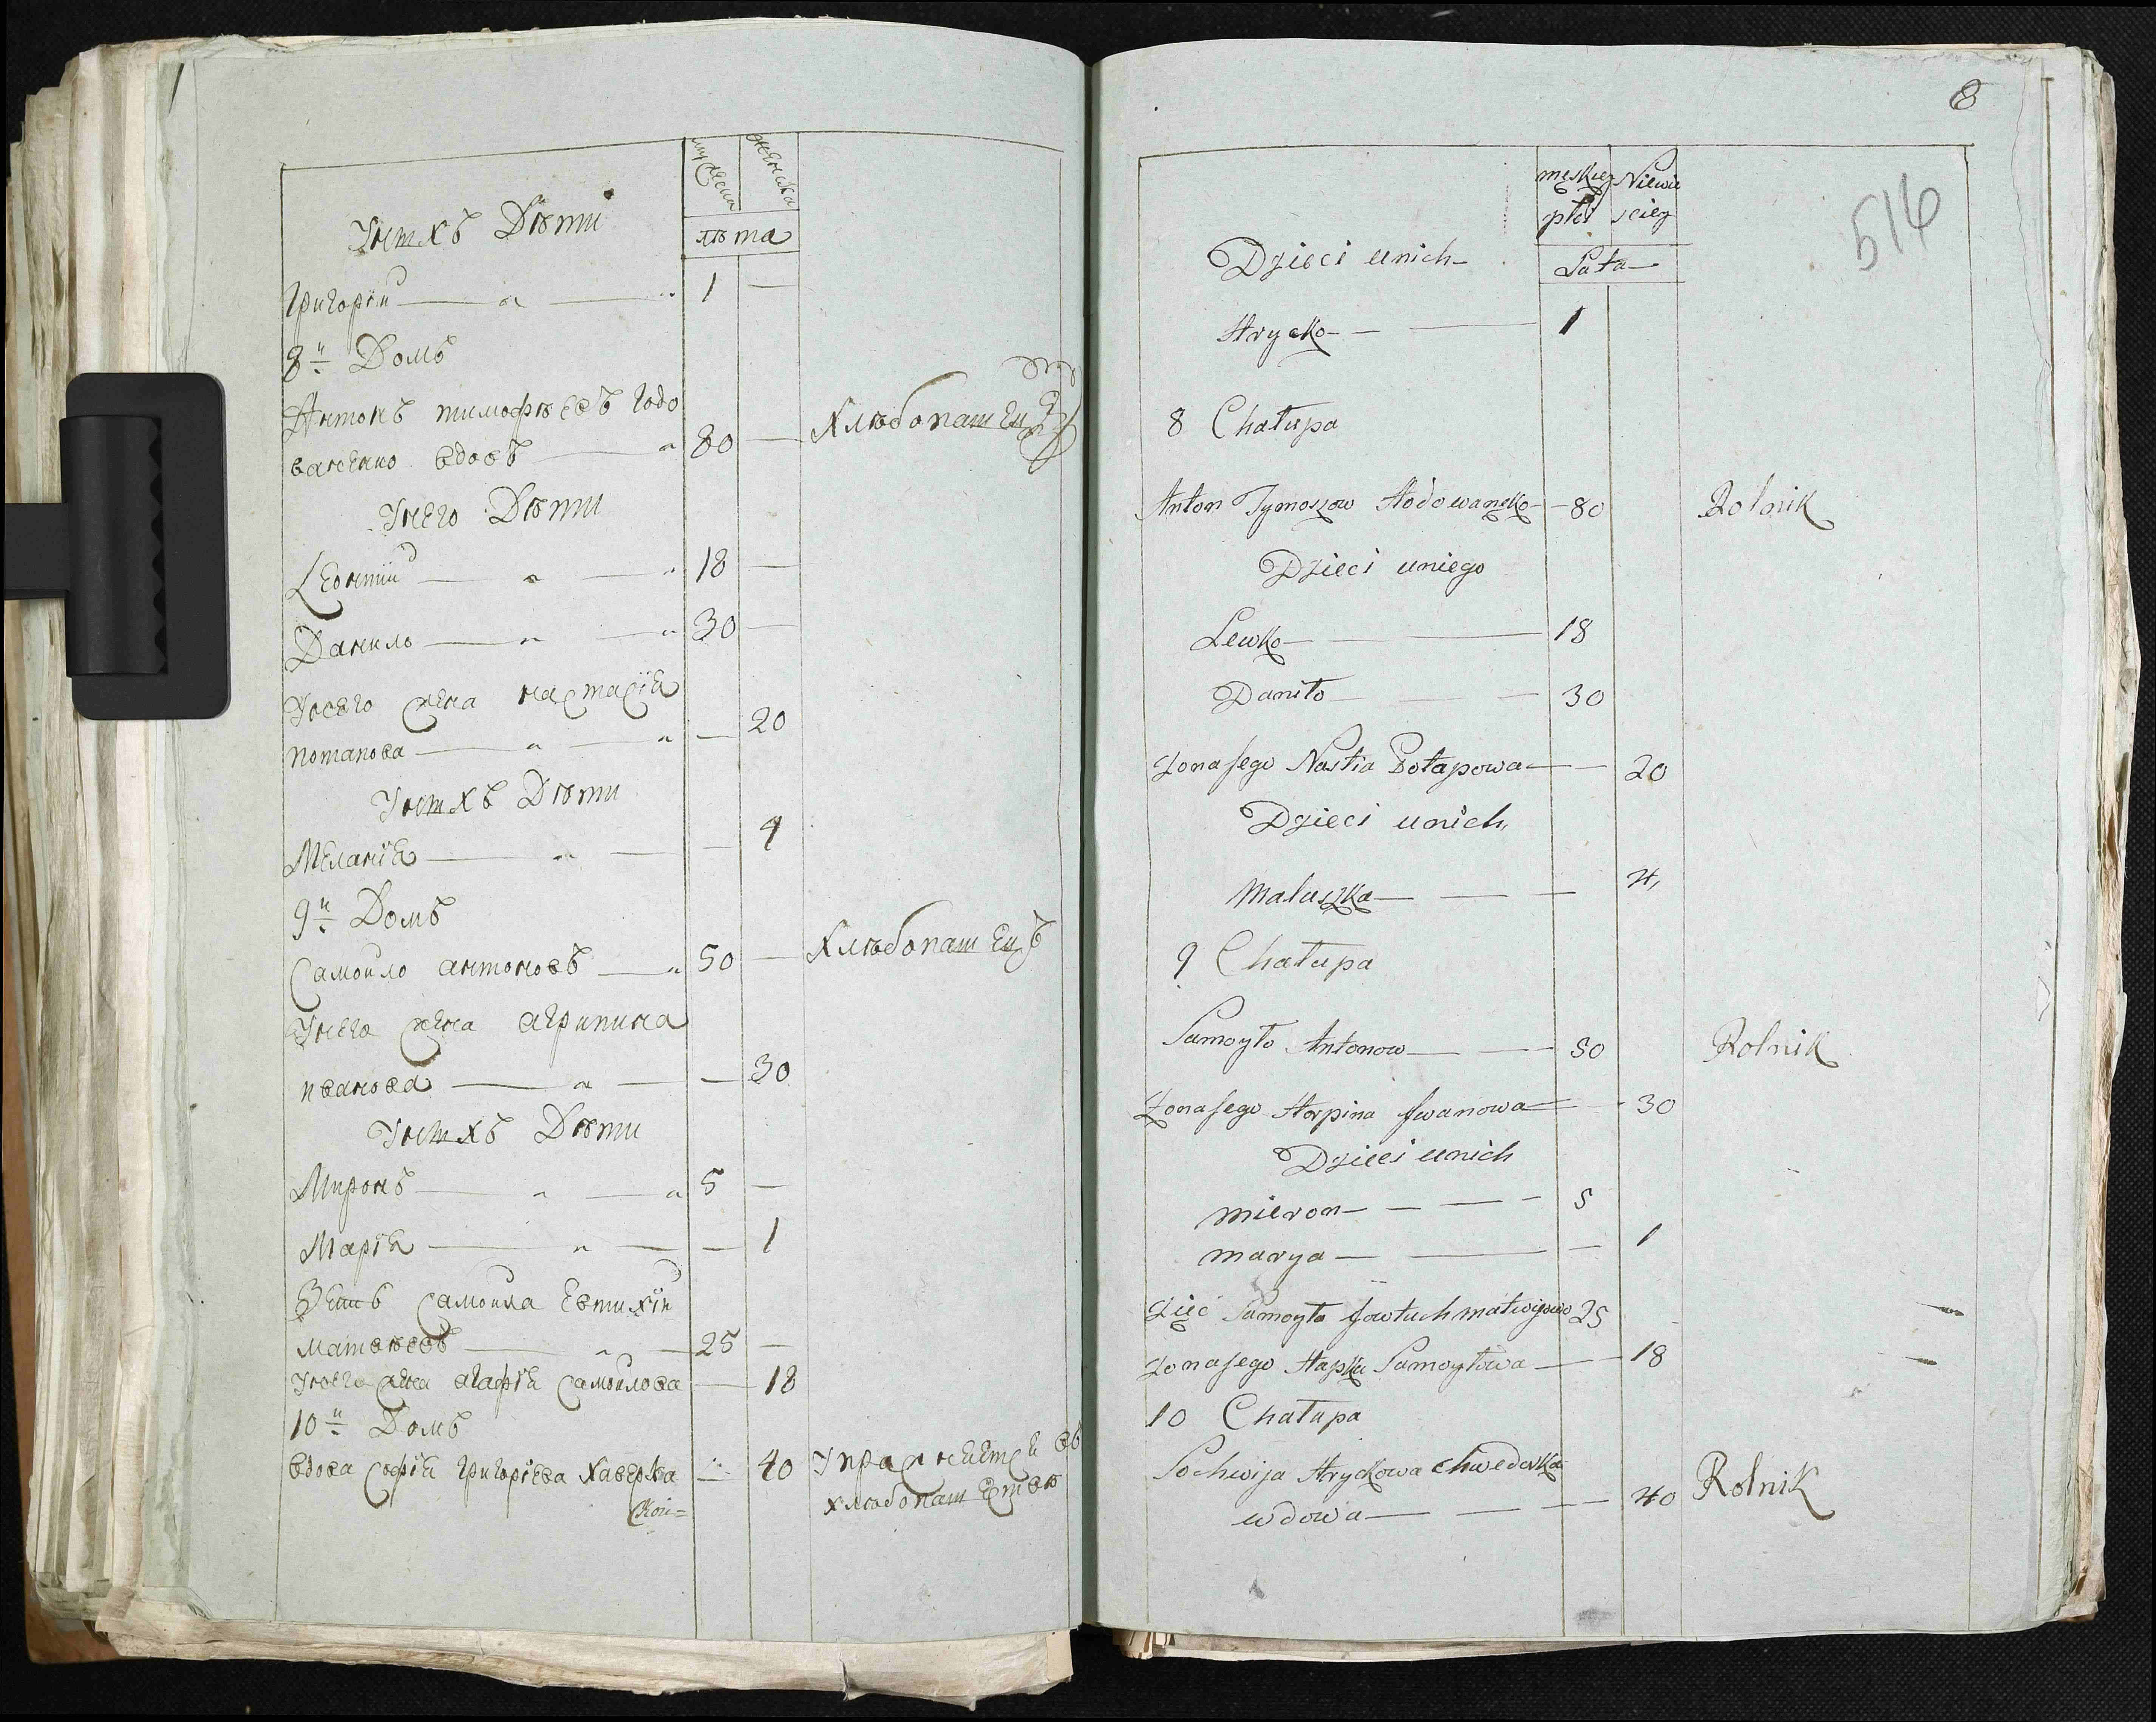 мужеска женска
Унихъ Дѣти
лѣта
Григорій — „ — „ 1 —
8й Домъ
Антонъ тимофѣевъ годо
ванско вдовъ — „ 80 — Хлѣбопашецъ
Унего Дѣти
Леонтій — „ — „ 18 —
Данило — „ — „ 30 —
Унего жена настасія
потапова — „ — „ — 20
Унихъ Дѣти
Меланія — „ — — 4
9й Домъ
Самойло антоновъ — „ 50 — Хлѣбопашецъ
Унего жена агрипина
иванова — „ — — 30
Унихъ Дѣти
Миронъ — „ — „ 5 —
Марія — „ — — 1
Зять Самойла Евтихій
матвѣевъ — „ — 25 —
Унего жена агафія самойлова — 18
10й Домъ
вдова софія григоріева хаверка — 40 Упражняется въ
хлѣбопашествѣ
8
516
męskiey Niewie
płci sciey
Dzieci unich Lata
Hrycko — — 1
8 Chałupa
Anton Tymoszow Hodowansko — 80 Rolnik
Dzieci uniego
Lewko — 18
Daniło — — 30
Żona jego Nastia Potapowa — — 20
Dzieci unich
Małaszka — — — 4
9 Chałupa
Samoyło Antonow — — 50 Rolnik
Żona jego Horpina Iwanowa — — 30
Dzieci unich
mieron — — — 5
marya — — — 1
Zięć Samoyła Jowtuch matwijow 25
Żona jego Hapka Samoyłowa — — 18
10 Chałupa
Sochwija Hryckowa Chwederka
wdowa — — — 40 Rolnik